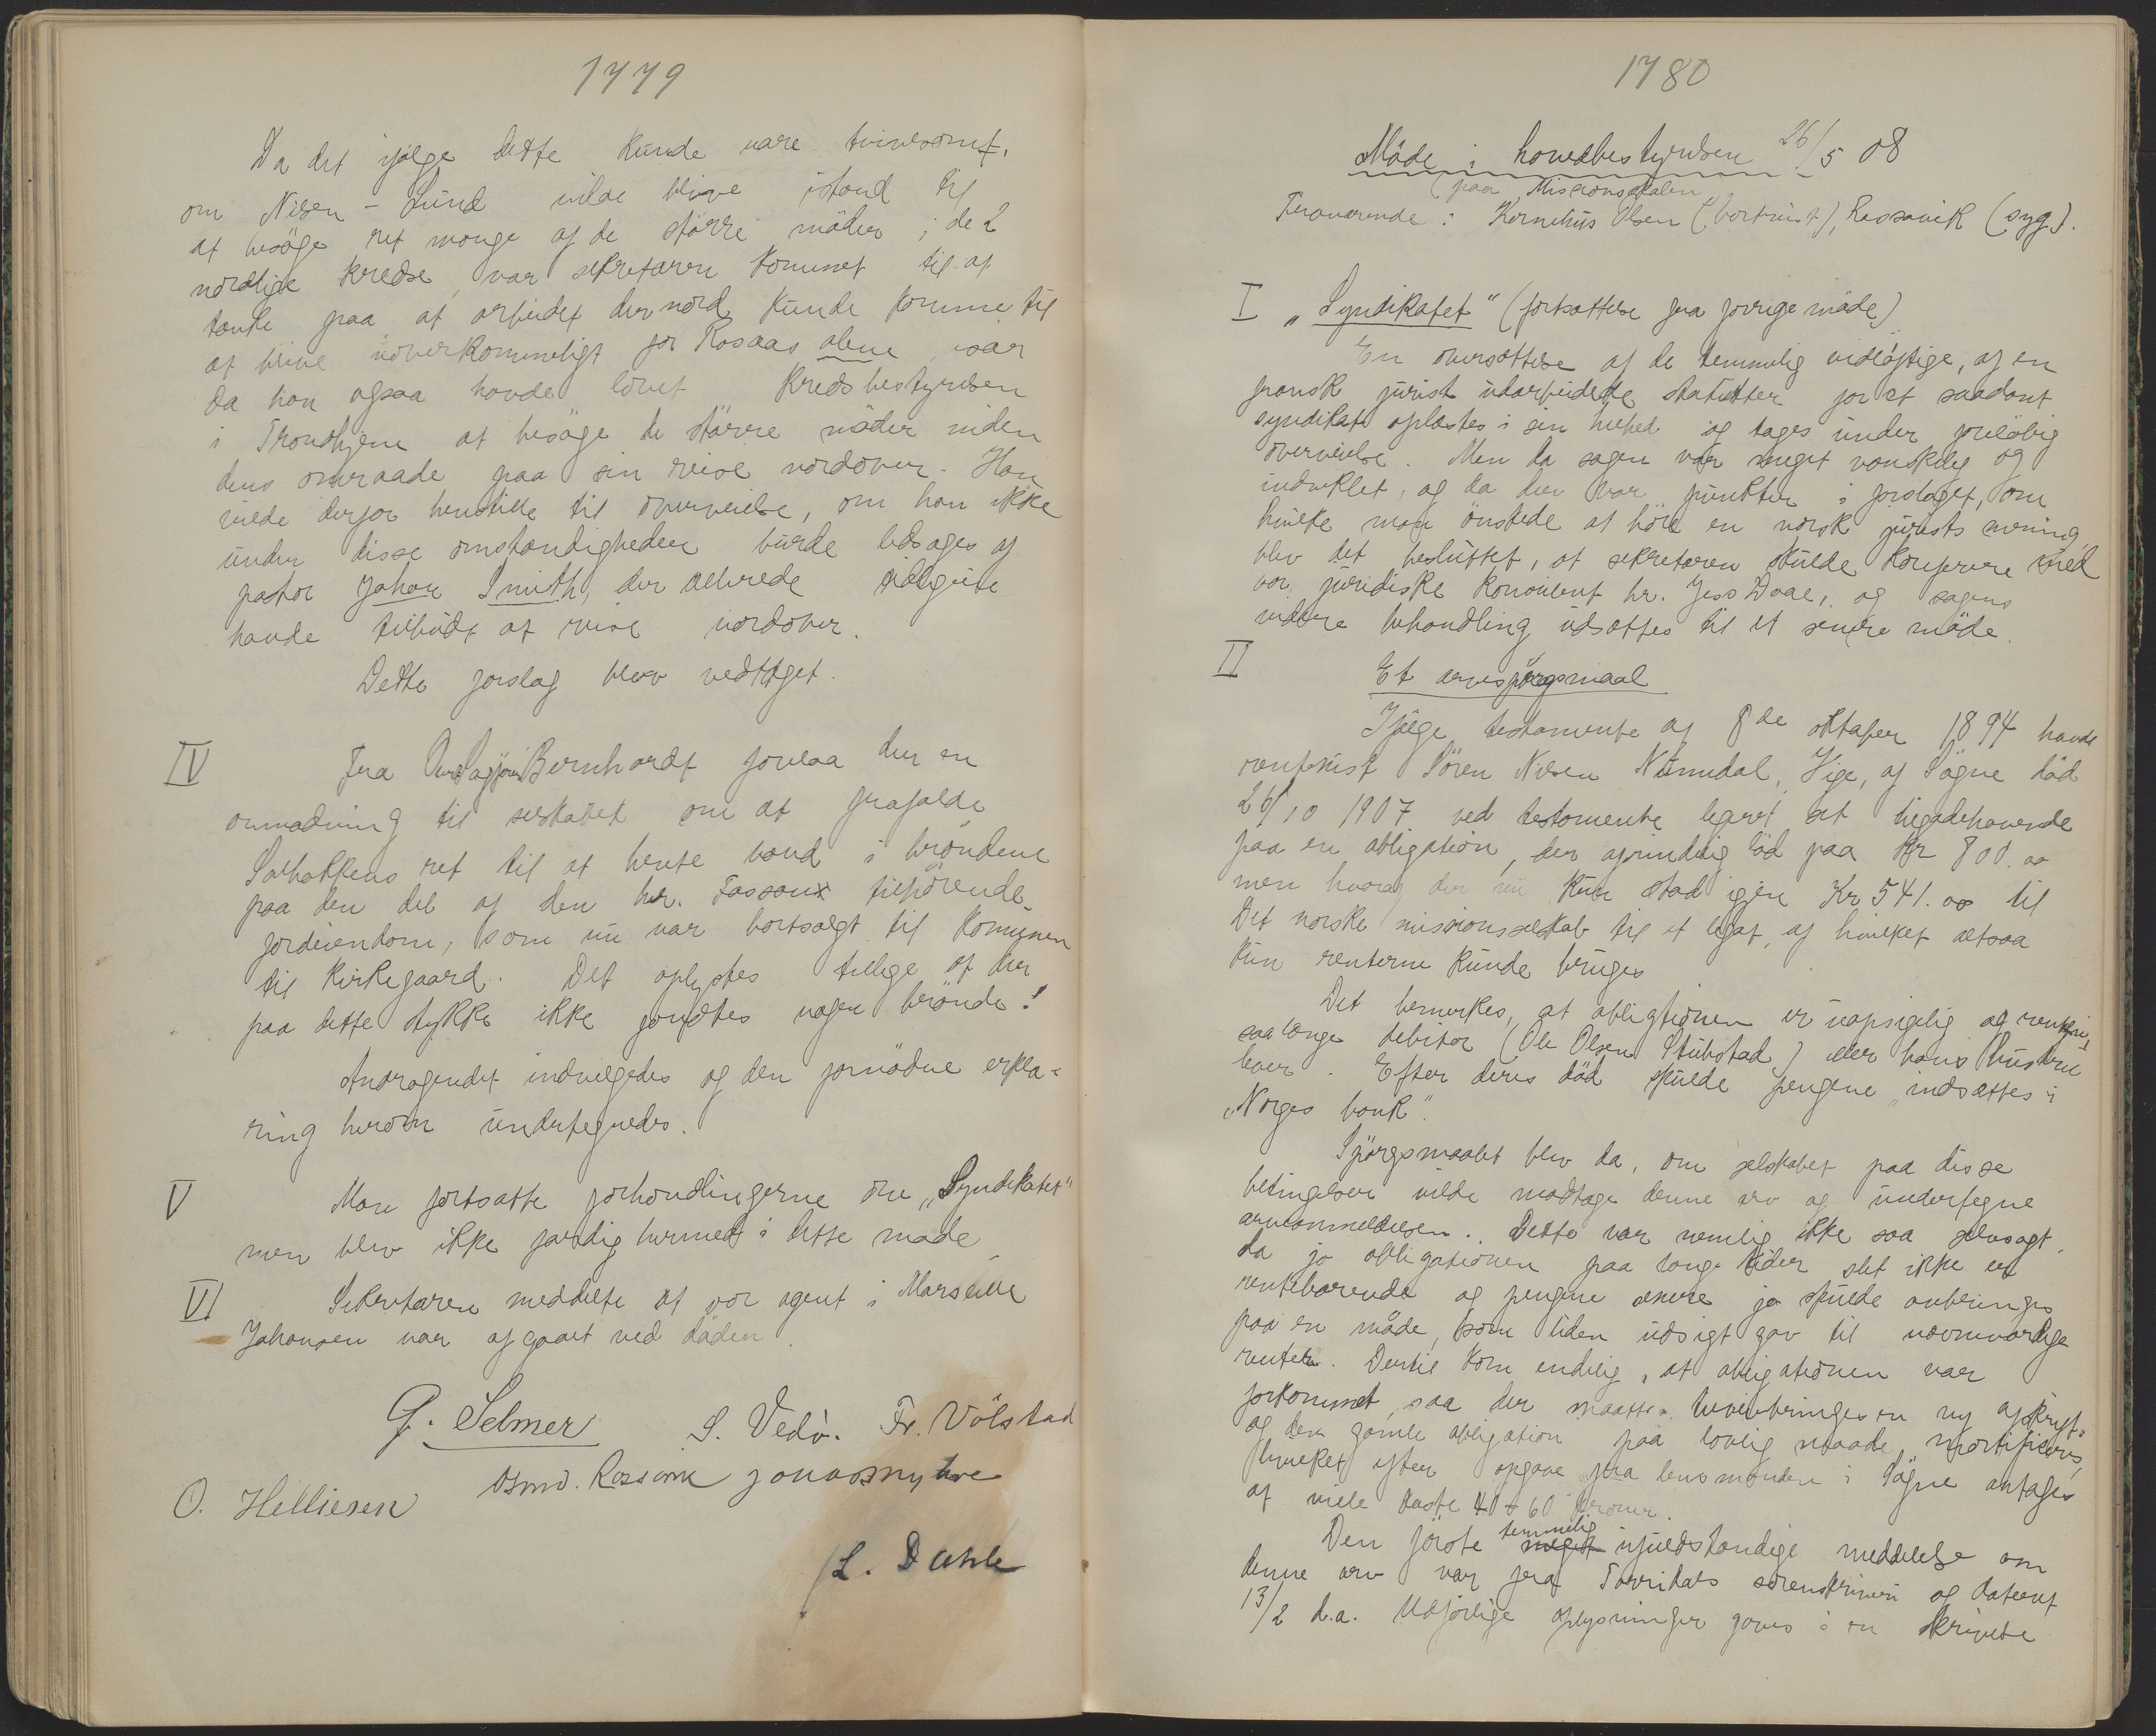 1779
Da det ifølge dette kunde være tvivlsomt,
om Nilsen-Lund vilde blive istand til
at besøge ret mange af de større møder i de 2
nordlige kredse, var sekretæren kommet til at
tænke paa at arbeidet der nord kunde komme til
at blive uoverkommeligt for Rosaas alene, især
da han ogsaa havde lovet kredsbestyrelsen
i Trondhjem at besøge de større møder inden
dens omraade paa sin reise nordover. Han
vilde derfor henstille til overveielse, om han ikke
under disse omstændigheder burde ledsages af
pastor Johan Smith, der allerede
havde tilbudt at reise nordover.
Dette forslag blev vedtaget.
IV Fra Bernhardt forelaa der en
anmodning til selskabet om at frafalde
Solbakkens ret til at hente vand i brøndene
paa den del af den hr. tilhørende
jordeiendom, som nu var bortsolgt til komunen
til kirkegaard. Det oplystes tillige at der
paa dette stykke ikke fandtes nogen brønde!
Andragendet indvilgedes og den fornødne erklæ-
ring herom undertegnedes.
V Man fortsatte forhandlingerne om "Syndikatet"
men blev ikke færdig hermed i dette møde
VI Sekretæren meddelte at vor agent i Marseille
Johansen var afgaaet ved døden.
G. Selmer S. Vedö. Fr. Völstad
O. Helliesen Asmd. Rossavik Jonas Myhre
/L. Dahle
1780
Møde i hovedbestyrelsen 26/5 08
(paa Missionsskolen
Fraværende: Kornelius Olsen (bortreist), Rossavik (syg).
I "Syndikatet" (fortsættelse fra forrige møde)
En oversættelse af de temmelig vidløftige, af en
fransk jurist udarbeidede statutter for et saadant
syndikat oplæstes i sin helhed og tages under foreløbig
overveielse. Men da sagen var meget vanskelig og
indviklet, og da der var punkter i forslaget, om
hvilke man ønskede at høre en norsk jurists mening,
blev det besluttet, at sekretæren skulde konferere med
vor juridiske konsulent hr. Jess Doae, og sagens
videre behandling udsættes til et senere møde.
II
Et arvespørgsmaal
Ifølge testamente af 8de oktober 1894 havde
rentenist Søren Nilsen Nømedal, Vige, af Søgne død
26/10 1907 ved testamente legeret sit tilgodehavende
paa en obligation, der oprindelig lød paa Kr 800.00
men hvoraf der nu kun stod igjen Kr 541.00 til
Det norske missionsselskab til et legat, af hvilket altsaa
kun renterne kunde bruges
Det bemerkes, at obligationen er uopsigelig og rentefri,
saalænge debitor (Ole Olsen Stubstad) eller hans hustru
lever. Efter deres død skulde pengene "indsættes i
"Norges bank".
Spørgsmaalet blev da, om selskabet paa disse
betingelser vilde modtage denne arv og undertegne
arveanmeldelsen. Dette var nemlig ikke saa selvsagt,
da jo obligationen paa lange tider slet ikke er
rentebærende og pengene senere jo skulde anbringes
paa en måde, som liden udsigt gav til nævneværdige
renter. Dertil kom endelig, at obligationen var
forkommet, saa der maatte tilveiebringes en ny afskrift
og den gamle obligation paa lovlig maade mortificeres,
hvilket efter opgave fra lensmanden i Søgne antages
at ville koste 40 à 60 kroner.
Den første temmelig ufuldstændige meddelelse om
denne arv var fra Torridals sorenskriveri og dateret
13/2 d.a. Udførlige oplysninger gaves i en skrivelse